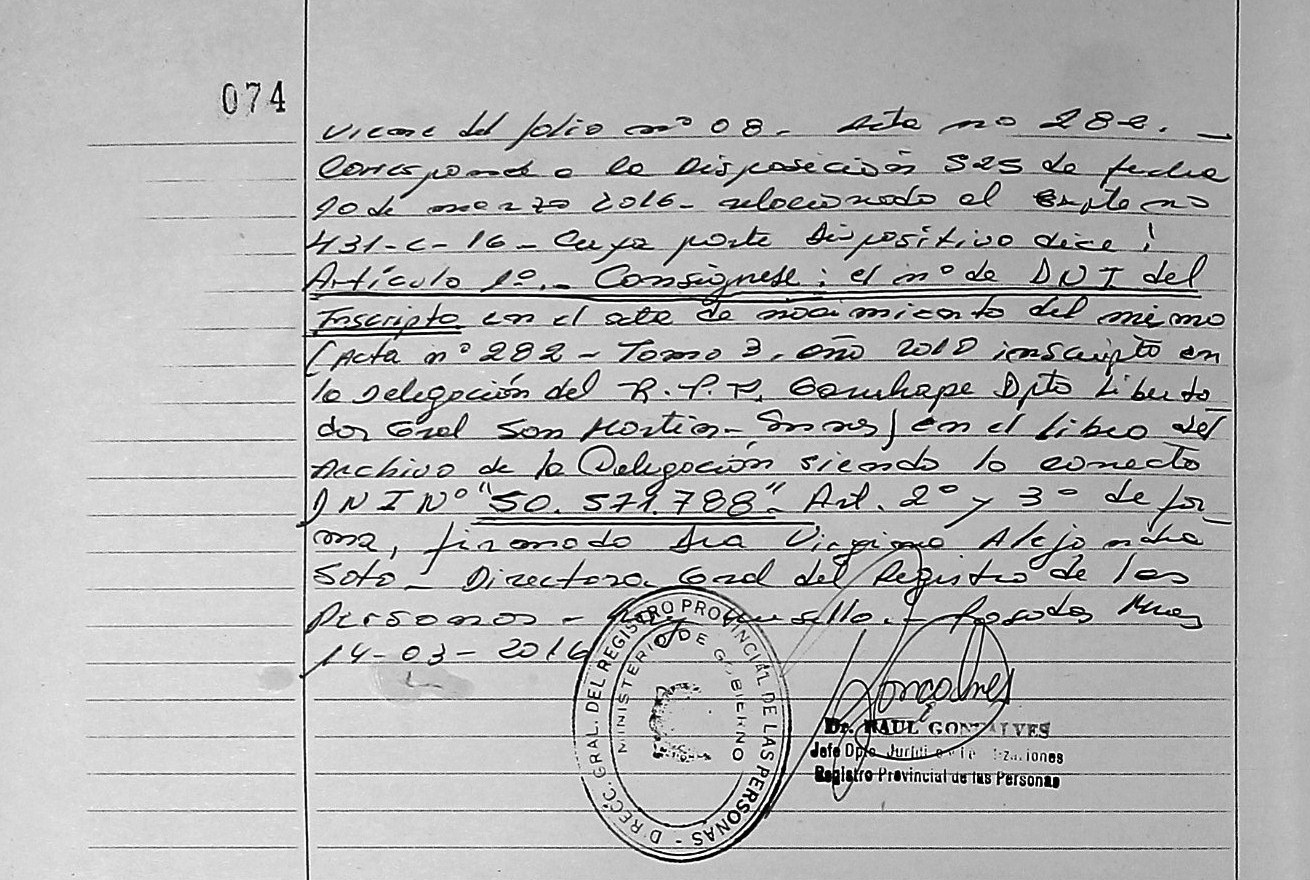 074
Viene del folio nº 08. Acta no 282. _
Corresponde a la Disposición 525 de fecha
10 de marzo 2016 - relacionado al Expte no
431-C-16 - Cuya parte Dispositivo dice:
Artículo 1º.- Consígnese: el nº de DNI del
Inscripto en el acta de nacimiento del mismo
(Acta nº 282 - Tomo 3, año 2010 inscripto en
la Delegación del R.P.P. Garuhape Dpto Liberta
dor Gral San Martín - Mnes) en el Libro del
Archivo de la Delegación siendo lo correcto
DNI Nº "50.571.788". Art. 2º y 3º de for_
ma, firmado Dra Virginia Alejandra
Soto - Directora Gral del Registro de las
Personas - Hay un sello. - Posadas Mnes
14-03-2016
DIRECC. GRAL. DEL REGISTRO PROVINCIAL DE LAS PERSONAS -
MINISTERIO DE GOBIERNO
Dr. RAUL GONZALVES
Jefe Dpto
Registro Provincial de las Personas